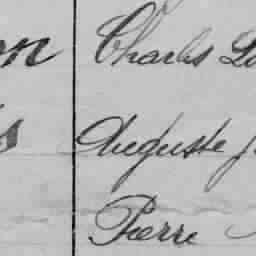 on Charles
s Auguste
Pierre